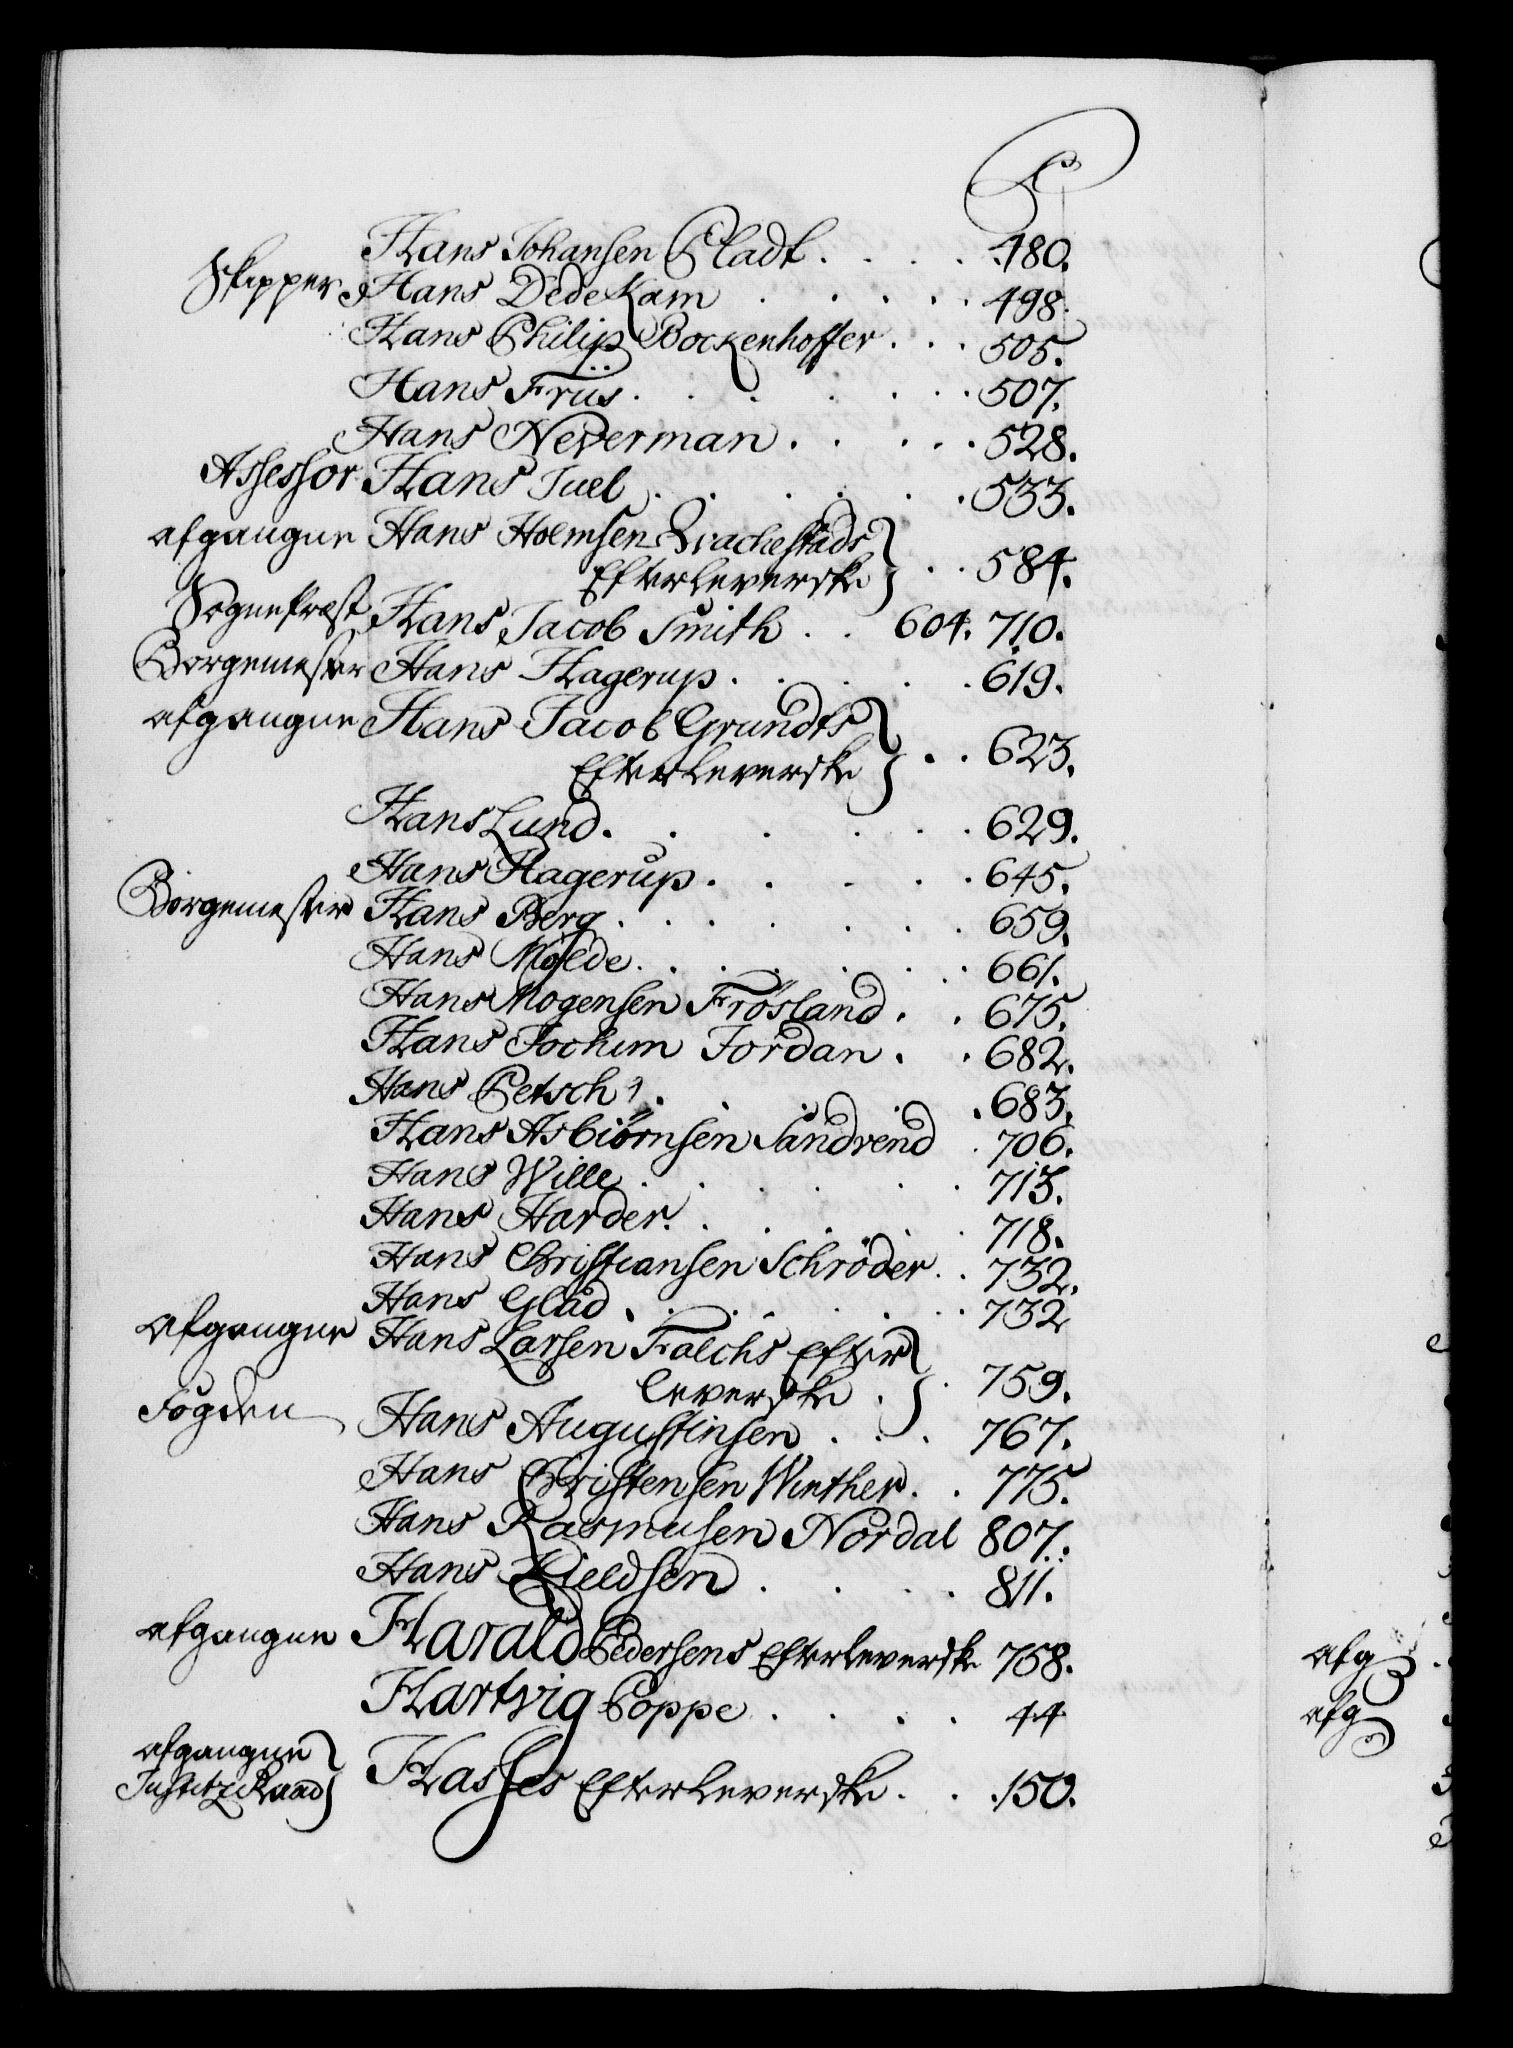 Hans Johansen Pladt . . . . 480.
Skipper Hans Dedekam . . . . . 498.
Hans Philip Bockenhoffer . . . 505.
Hans Friis . . . . . . 507.
Hans Neverman . . . . . 528.
Assessor Hans Juel . . . . . . 533.
afgangne Hans Holmsen Brachestads
Efterleverske } . . 584.
Sognepræst Hans Jacob Smith . . 604. 710.
Borgemester Hans Hagerup . . . . . 619.
afgangne Hans Jacob Grundts
Efterleverske } . . 623.
Hans Lund . . . . . . 629.
Hans Hagerup . . . . . 645.
Borgemester Hans Berg . . . . . . . 659.
Hans Mølde . . . . . . . 661.
Hans Mogensen Frösland . . 675.
Hans Jochim Jordan . . 682.
Hans Petsch . . . . . 683.
Hans Asbiörnsen Sandvend . 706.
Hans Wille . . . . . . 713.
Hans Harder . . . . . 718.
Hans Christiansen Schröder . . 732.
Hans Glad . . . . . . 732
Afgangne Hans Larsen Falchs Efter
leverske . } . 759.
Fogden Hans Augustinsen . . . 767.
Hans Christensen Winther . . 775.
Hans Rasmusen Nordal 807.
Hans Kieldsen . . . . 811.
afgangne Harald Pedersens Efterleverske 758.
Hartvig Poppe . . . . 44
afgangne
Justitz Raad } Hasses Efterleverske . . . 150.
afg
afg